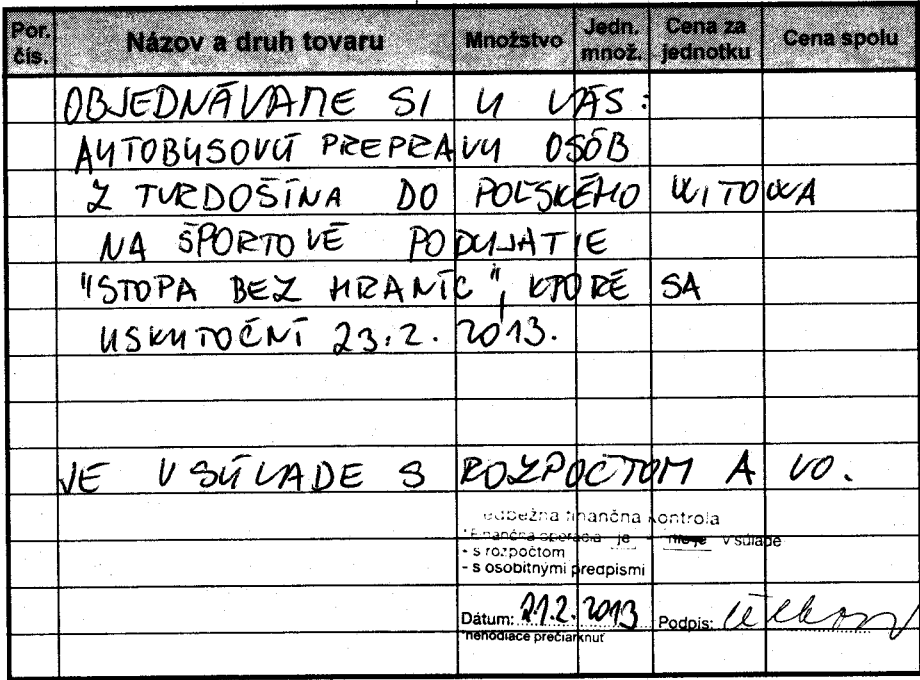 Por. čís. Názov a druh tovaru Množstvo Jedn. množ. Cena za jednotku Cena spolu
OBJEDNÁVAME SI U VÁS:
AUTOBUSOVÚ PREPRAVU OSÔB
Z TVRDOŠÍNA DO POĽSKÉHO WITOWA
NA ŠPORTOVÉ PODUJATIE
"STOPA BEZ HRANÍC", KTORÉ SA
USKUTOČNÍ 23.2. 2013.
JE V SÚLADE S ROZPOČTOM A VO.
edbežná finančná kontrola
*Finančná operácia je - nie je v súlade
- s rozpočtom
- s osobitnými predpismi
Dátum: 21.2. 2013 Podpis:
*nehodiace prečiarknuť